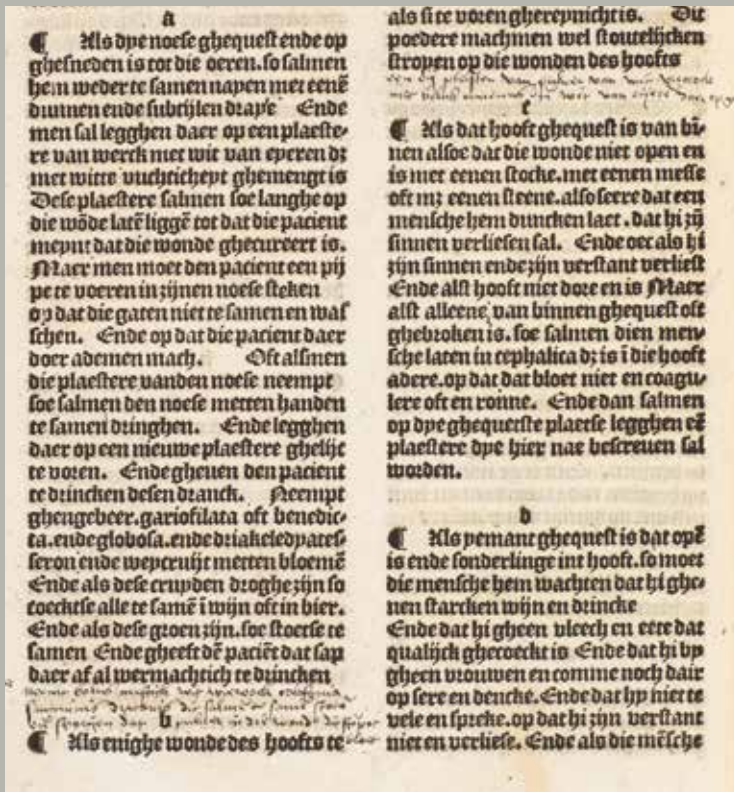 a
¶ Als dye noese ghequest ende op
ghesneden is tot die oeren. so salmen
hem weder te samen nayen met eenē
dunnen ende subtijlen draye Ende
men sal legghen daer op een plaeste-
re van werck met wit van eyeren dꝫ
met witte vuchticheyt ghemengt is
Dese plaestere salmen soe langhe op
die wōde latē liggē tot dat die pacient
meynt dat die wonde ghecureert is.
Maer men moet den pacient een pij
pe te voeren in zijnen noese steken
op dat die gaten niet te samen en waſ
schen. Ende op dat die pacient daer
doer ademen mach. Oft alsmen
die plaestere vanden noese neempt
soe salmen den noese metten handen
te samen dringhen. Ende legghen
daer op een nieuwe plaestere ghelijc
te voren. Ende gheuen den pacient
te drincken desen dranck. Neempt
ghengebeer. gariofilata oft benedic-
ta. ende globosa. ende driakeledyates-
seron ende weycruijt metten bloemē
Ende als dese cruyden droghe zijn so
coecktse alle te samē ī wijn oft in bier.
Ende als dese groen zijn. soe stoetse te
samen Ende gheeft dē paciēt dat sap
daer af al wermachtich te drincken
b
¶ Als enighe wonde des hoofts te
als si te voren ghereynicht is. Dit
poedere machmen wel stoutelijcken
stroyen op die wonden des hoofts
c
¶ Als dat hooft ghequest is van bī-
nen alsoe dat die wonde niet open en
is met eenen stocke. met eenen messe
oft mꝫ eenen steene. also seere dat een
mensche hem duncken laet. dat hi zijn
sinnen verliesen sal. Ende oec als hi
zijn sinnen ende zijn verstant verliest
Ende alst hooft niet dore en is Maer
alst alleene van binnen ghequest oft
ghebroken is. soe salmen dien men-
sche laten in cephalica dꝫ is ī die hooft
adere. op dat dat bloet niet en coagu-
lere oft en ronne. Ende dan salmen
op dye ghequetste plaetse legghen eē
plaestere dye hier nae bescreuen sal
worden.
d
¶ Als yemant ghequest is dat opē
is ende sonderlinge int hooft. so moet
die mensche hem wachten dat hi ghe-
nen starcken wijn en drincke
Ende dat hi gheen vleech en eete dat
qualijck ghecoeckt is Ende dat hi by
gheen vrouwen en comme noch dair
op sere en dencke. Ende dat hy niet te
vele en spreke. op dat hi zijn verstant
niet en verliese. Ende als die mēsche